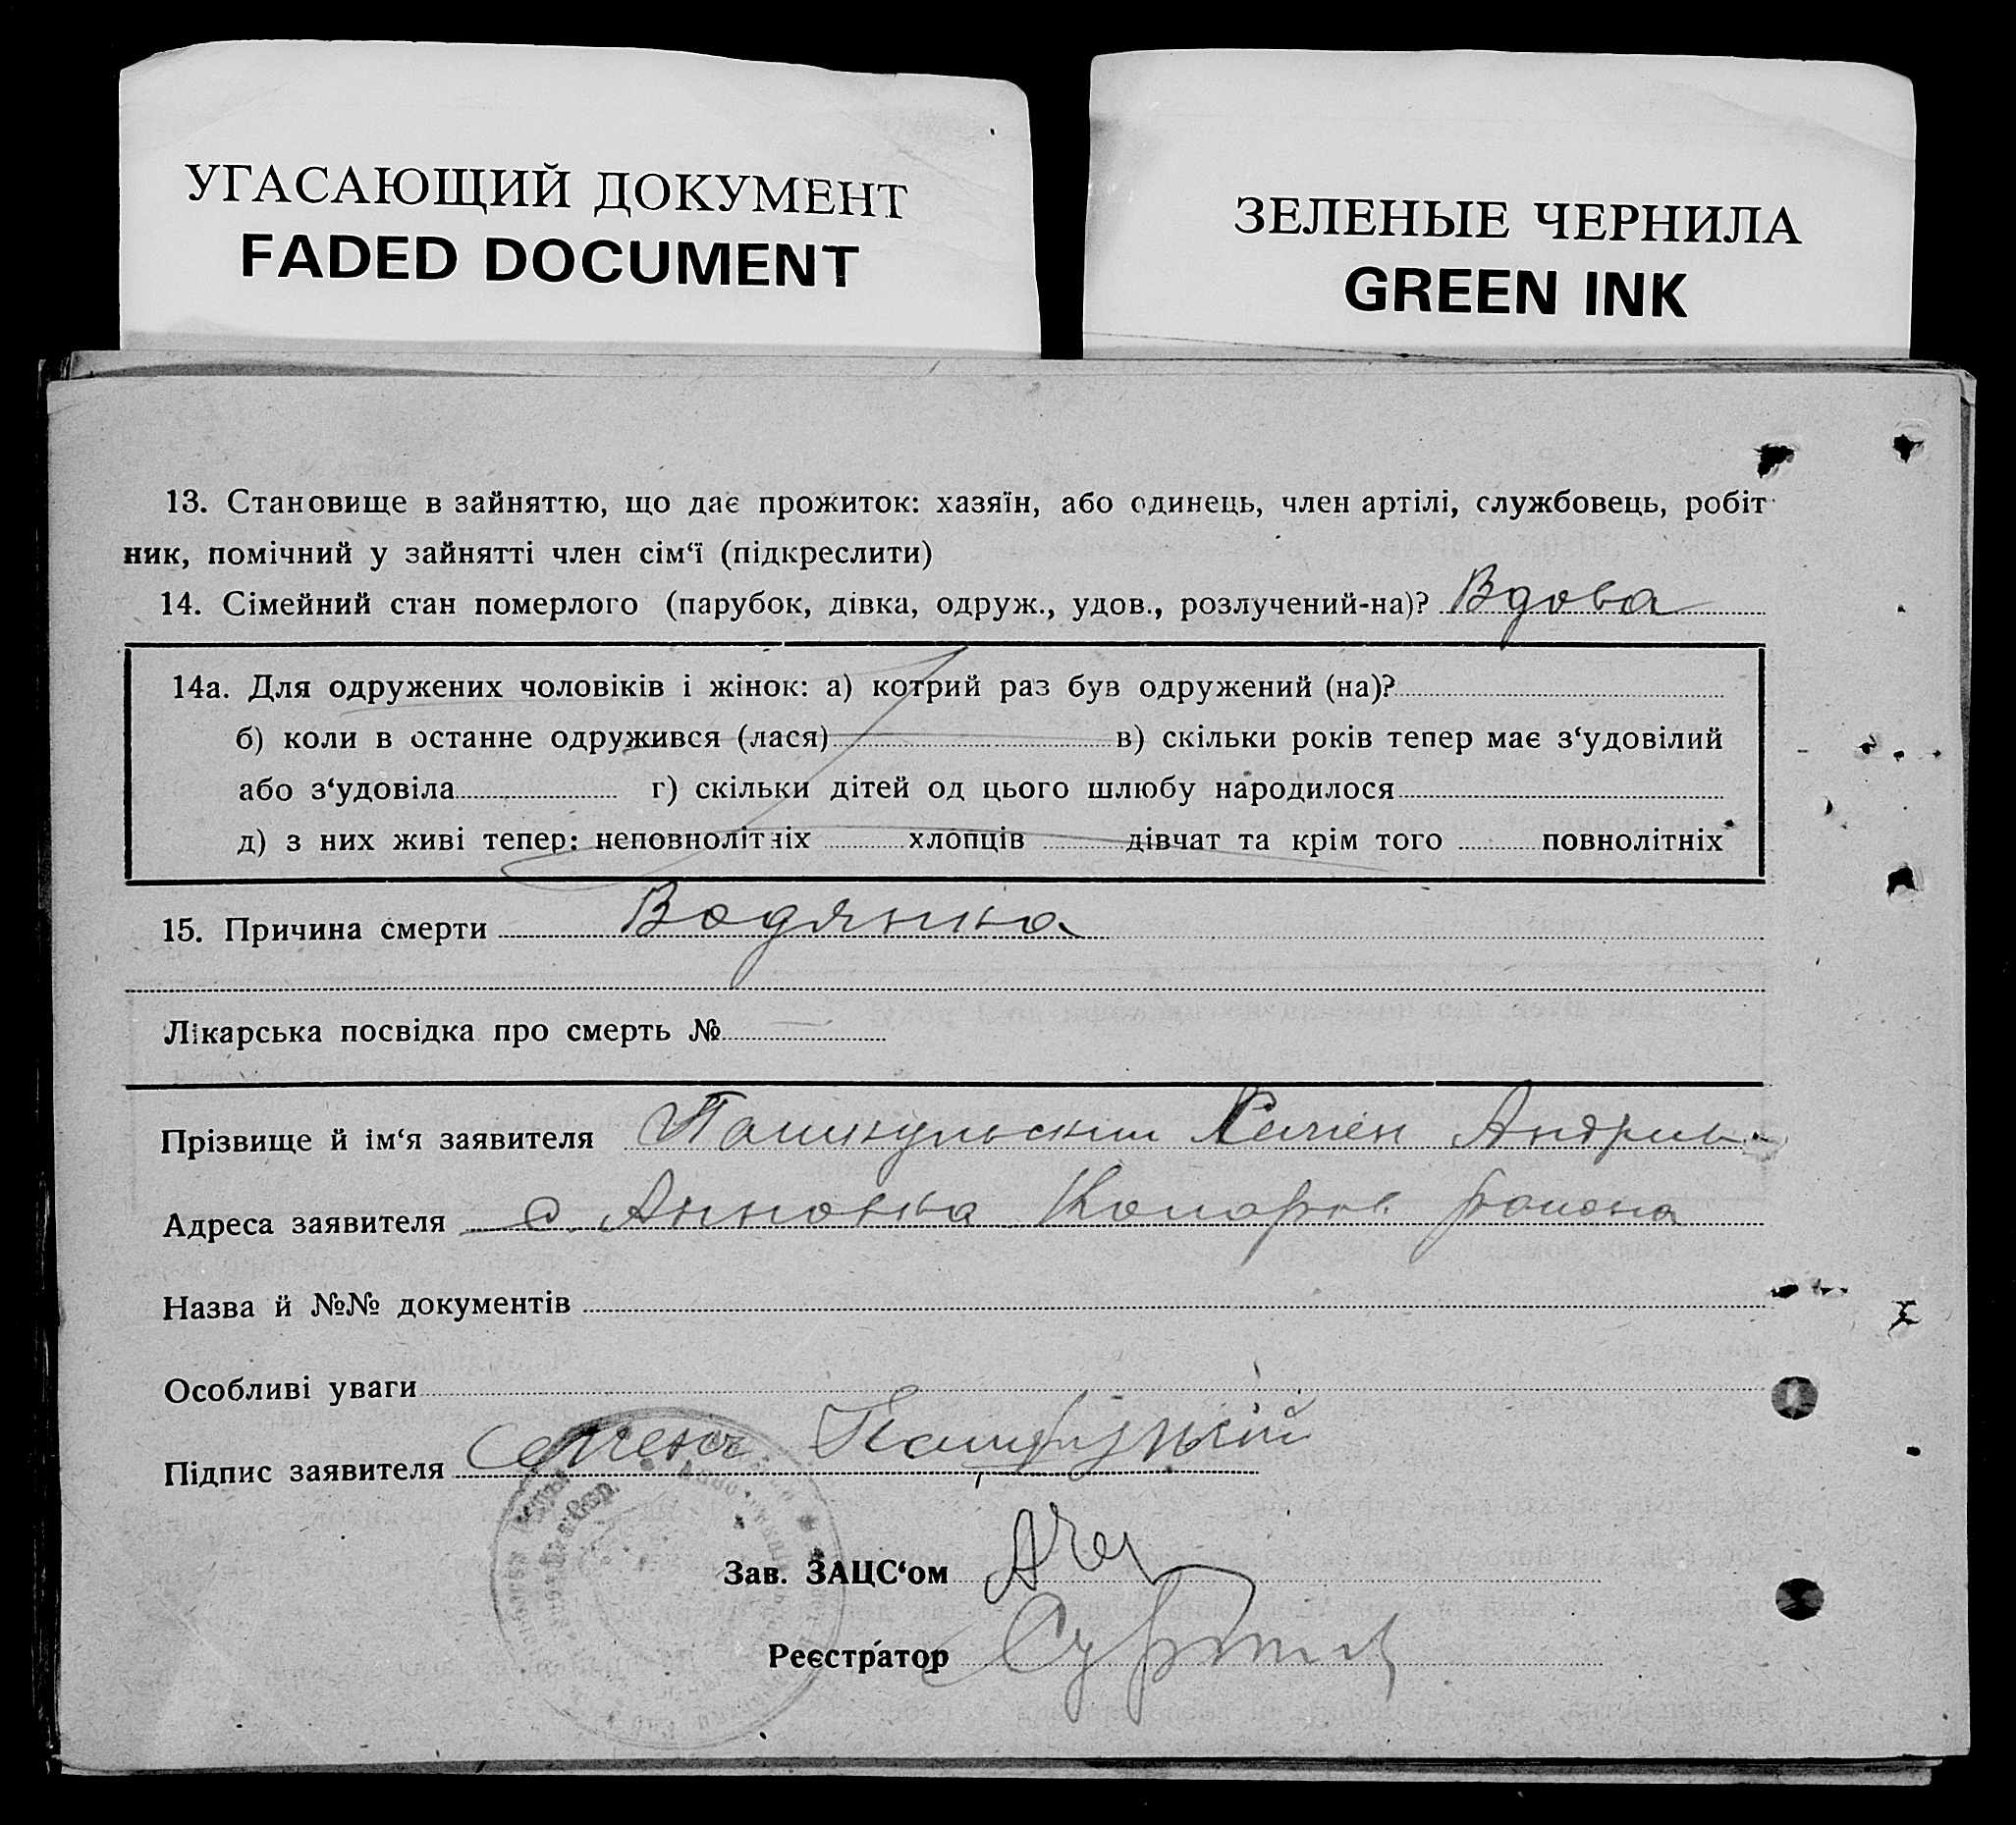 УГАСАЮЩИЙ ДОКУМЕНТ
FADED DOCUMENT
ЗЕЛЕНЫЕ ЧЕРНИЛА
GREEN INK
13. Становище в зайняттю, що дає прожиток: хазяїн, або одинець, член артілі, службовець, робіт
ник, помічний у зайнятті член сім‘ї (підкреслити)
14. Сімейний стан померлого (парубок, дівка, одруж., удов., розлучений-на)? Вдова
14а. Для одружених чоловіків і жінок: а) котрий раз був одружений (на)?
б) коли в останне одружився (лася) в) скільки років тепер має з‘удовілий
або з‘удовіла г) скільки дітей од цього шлюбу народилося
д) з них живі тепер: неповнолітніх хлопців дівчат та крім того повнолітніх
15. Причина смерти Водянка
Лікарська посвідка про смерть №
Прізвище й ім‘я заявителя Семен
Адреса заявителя с. Анновка района
Назва й №№ документів
Особливі уваги
Підпис заявителя Семен
Зав. ЗАЦС‘ом
Реєстратор